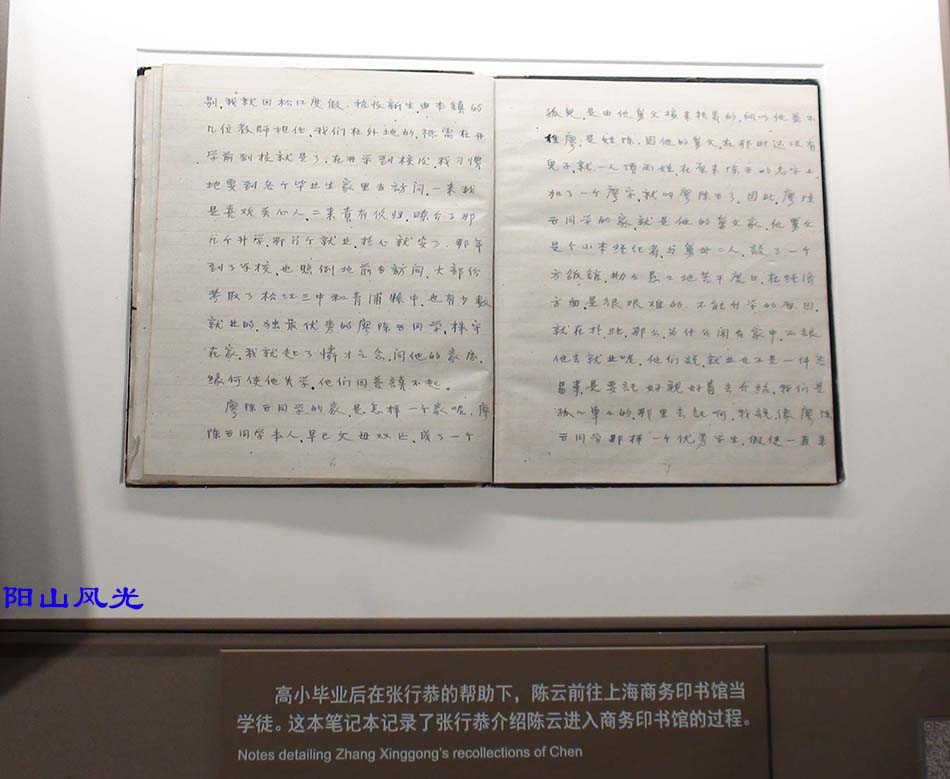 别，我就回松江度假，招收新生由本镇的
几位教师担任，我们在外地的，祇需在开
学前到校就是了，在开学到校后，我习惯
地要到各个毕业生家里去訪问，一来我
是喜欢关心人，二来責有攸归，瞭解了那
几个升学，那几个就业，於心就安了，那年
到了学校，也照例地前去訪问，大部份
考取了松江三中和青浦縣中，也有少數
就业的，独最优秀的廖陈云同学，株守
在家，我就起了憐才之念，问他的家属，
緣何使他失学，他们回答讀不起。
廖陈云同学的家，是怎样一个家呢，廖
陈云同学本人，早已父母双亡，成了一个
6
孤兒，是由他舅父撫養的，所以他並不
姓廖，是姓陈，因他的舅父，在那时还没有
兒子，就一人頂兩姓在原来陈云的名字上
加了一个廖字，就叫廖陈云了，因此，廖陈
云同学的家，就是他的舅父家，他舅父
是个小本经纪者，与舅母二人，設了一个
方飯舘，勤々恳々地苦干度日，在经济
方面是很艰难的，不能升学的原因，
就在於此，那么，为什么闲在家中，不設
他去就业呢，他们説，就业也不是一件容
易事，是要託好親好眷去介紹，我们是
孤々单々的，那里去託啊，我説，像廖陈
云同学那样一个优秀学生，假使一直呆
7
阳山风光
高小毕业后在张行恭的帮助下，陈云前往上海商务印书馆当
学徒。这本笔记本记录了张行恭介绍陈云进入商务印书馆的过程。
Notes detailing Zhang Xinggong's recollections of Chen